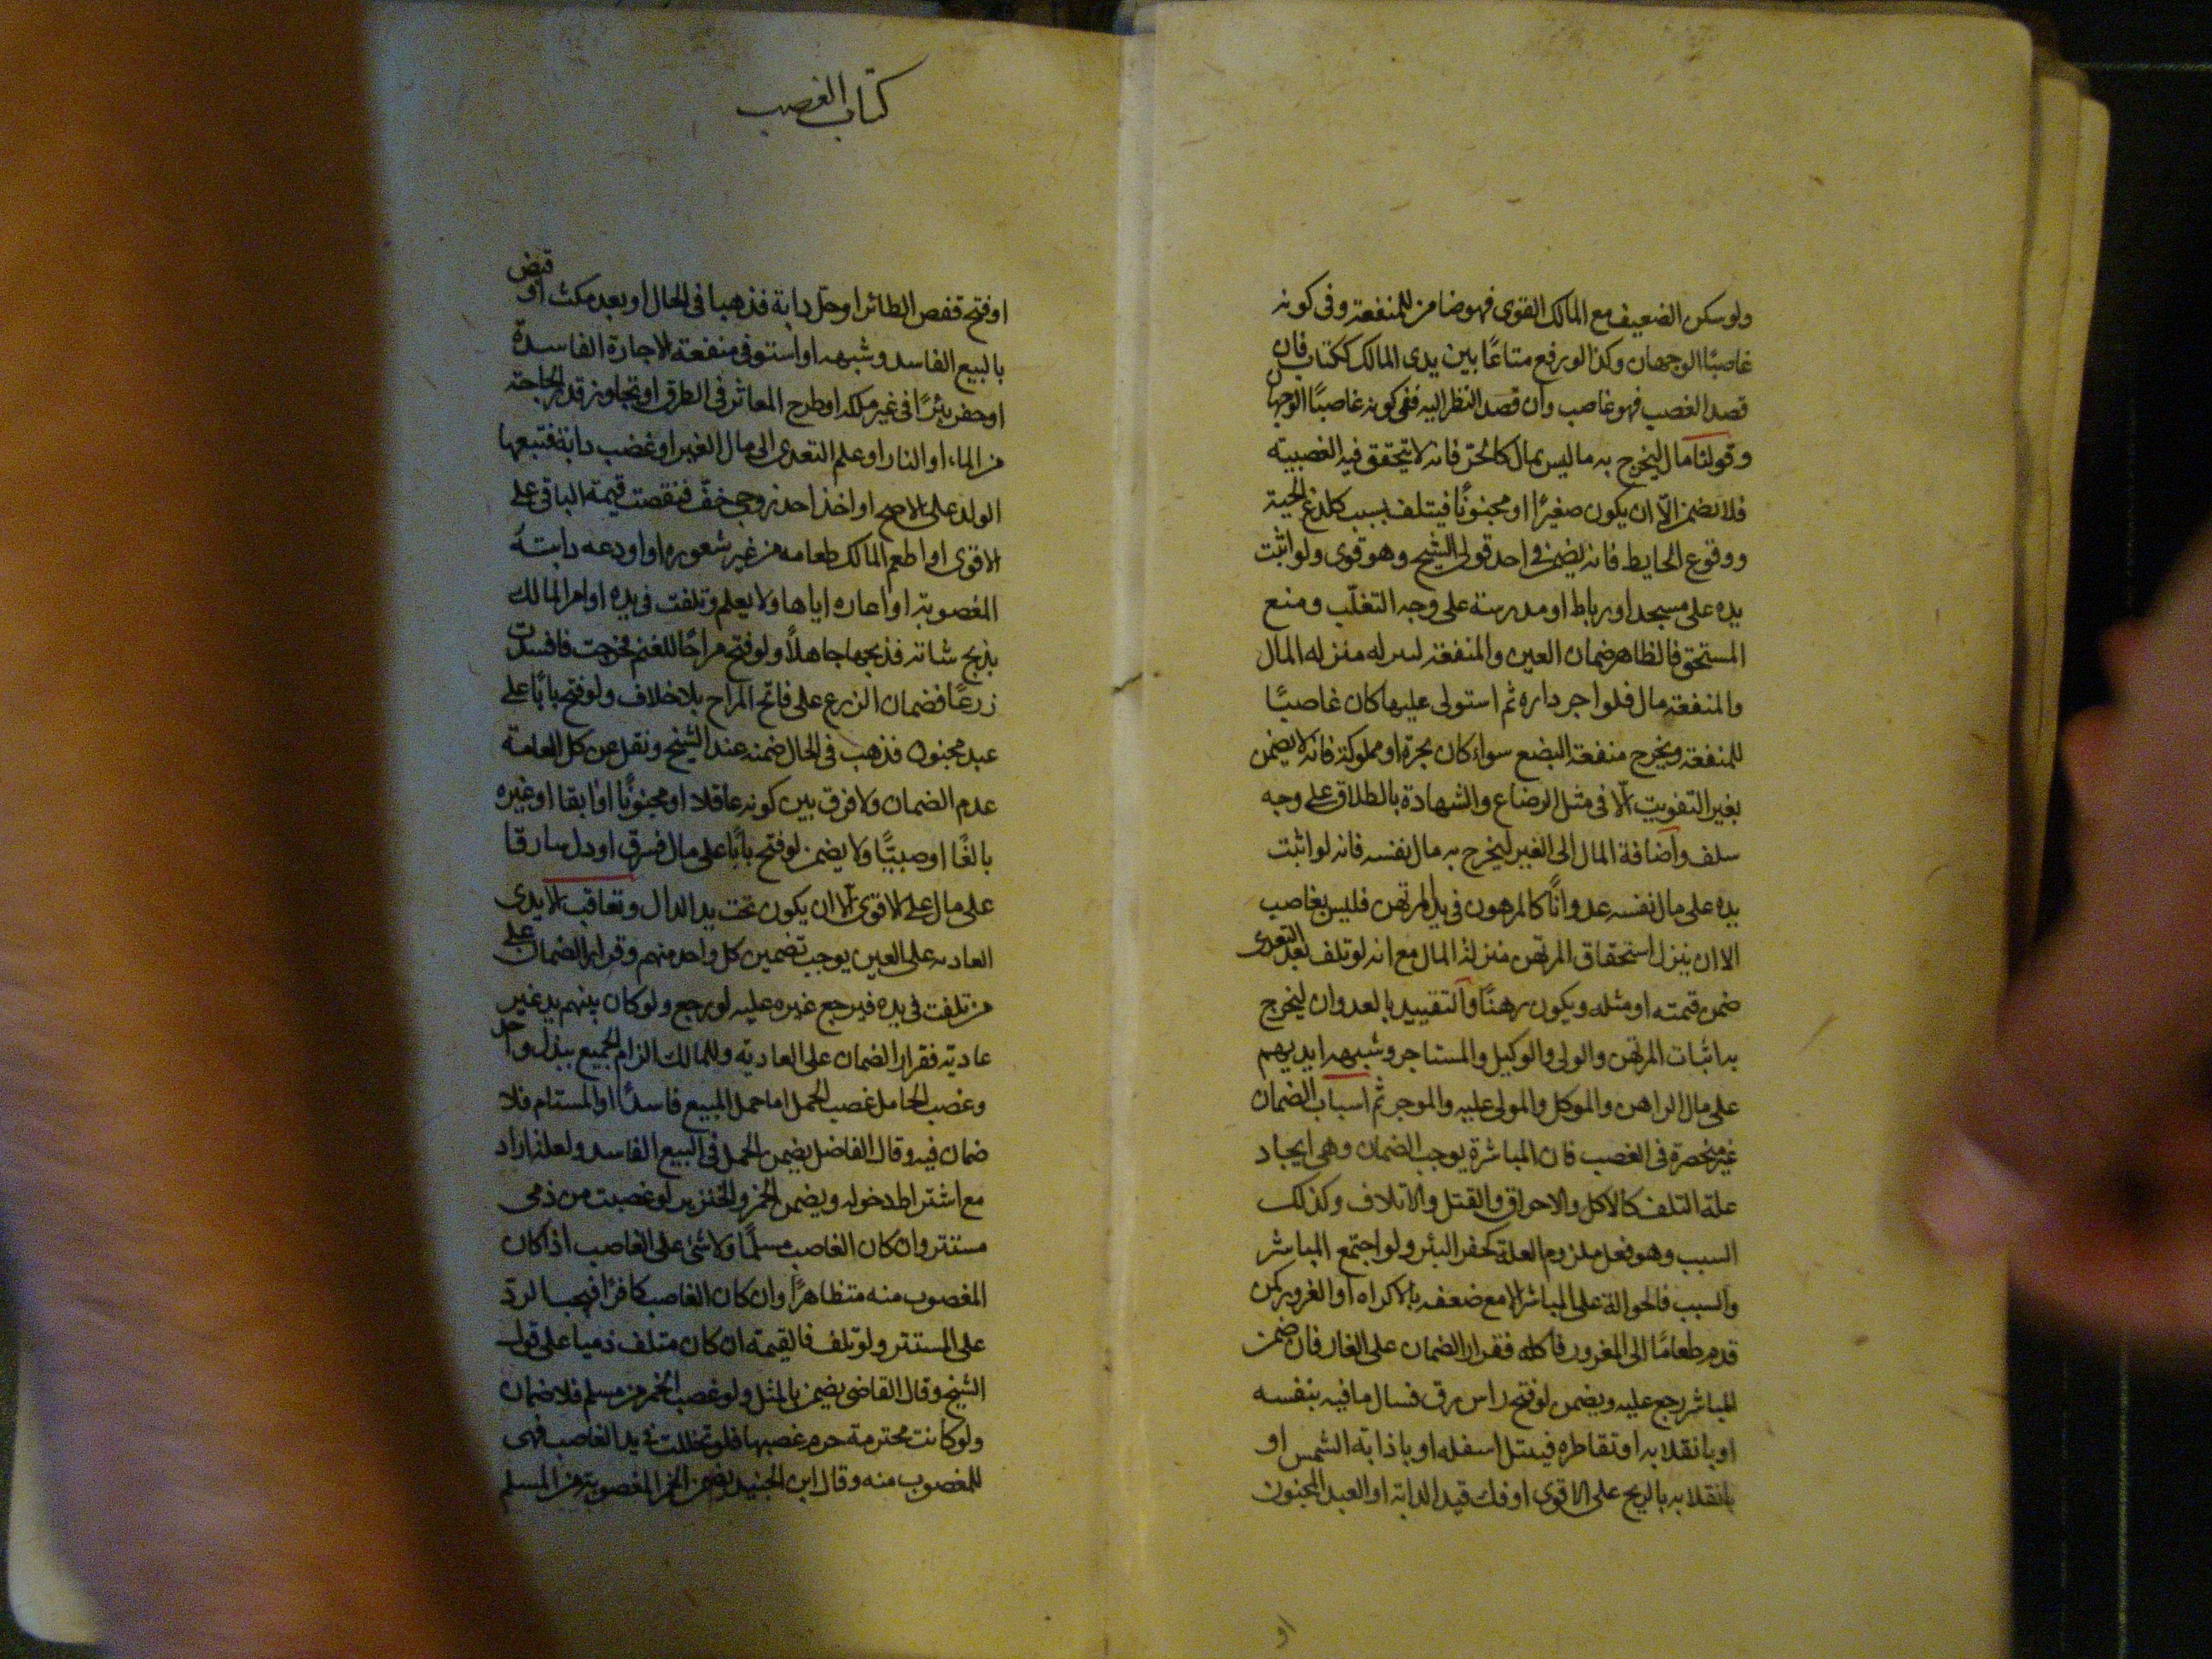 ولو سكن الضعيف مع المالك القوى فهو ضامن للمنفعة وفى كونه
غاصبًا الوجهان وكذا لو رفع متاعًا بين يدى المالك ككتاب فان
قصد الغصب فهو غاصب وان قصد النظر اليه ففى كونه غاصبًا الوجهان
وقولنا مال ليخرج به ما ليس بمال كالحر فانه لا يتحقق فيه الغصبية
فلا يضمن الّا ان يكون صغيرًا او مجنونًا فيتلف بسبب كلدغ الحية
ووقوع الحايط فانه يضمن فى احد قولى الشيخ وهو قوى ولو اثبت
يده على مسجد او رباط او مدرسة على وجه التغلّب ومنع
المستحق فالظاهر ضمان العين والمنفعة منزله المال
والمنفعة مال فلو اجر داره ثم استولى عليها كان غاصبًا
للمنفعة ويخرج منفعة البضع سواء كان بحرة او مملوكة فانه لا يضمن
بغير التفويت الّا فى مثل الرضاع والشهادة بالطلاق على وجه
سلف واضافة المال الى الغير ليخرج به مال نفسه فانه لو اثبت
يده على مال نفسه عدوانًا كالمرهون فى يد المرتهن فليس بغاصب
الا ان ينزل استحقاق المرتهن منزلة المال مع انه لو تلف بعد التعدى
ضمن قيمته او مثله ويكون رهنًا والتقييد بالعدوان ليخرج
به اثبات المرتهن والولى والوكيل والمستاجر وشبهه ايديهم
على مال الراهن والموكل والمولى عليه والموجر ثم اسباب الضمان
غير منحصرة فى الغصب فان المباشرة يوجب الضمان وهى ايجاد
علة التلف كالاكل والاحراق والقتل والاتلاف وكذلك
السبب وهو فعل ملزوم العلة كحفر البئر ولو اجتمع المباشر
والسبب فالحوالة على المباشر الا مع ضعفه بالاكراه او الغرور كمن
قدم طعامًا الى المغرور فاكله فقرار الضمان على الغار فان ضمن
المباشر رجع عليه ويضمن لو فتح راس زق فسال ما فيه بنفسه
او بانقلابه او تقاطره فيبتل اسفله او باذابة الشمس او
بانقلابه بالريح على الاقوى او فك قيد الدابة او العبد المجنون
او
كتاب الغصب
او فتح قفص الطائر او حل دابة فذهبا فى الحال او بعد مكث او قبض
بالبيع الفاسد وشبهه او استوفى منفعة الاجارة الفاسدة
او حفر بئرًا فى غير ملكه او طرح المعاثر فى الطرق او تجاوز قدر الحاجة
من الماء او النار او علم التعدى الى مال الغير او غصب دابة فتبعها
الولد على الاصح او اخذ احد زوجى خف فنقصت قيمة الباقى على
الاقوى او اطعم المالك طعامه من غير شعوره او اودعه دابته
المغصوبة او اعاره اياها ولا يعلم وتلفت فى يده او امر المالك
بذبح شاته فذبحها جاهلًا ولو فتح مراحًا للغنم فخرجت فافسدت
زرعًا فضمان الزرع على فاتح المراح بلا خلاف ولو فتح بابًا على
عبد مجنون فذهب فى الحال ضمنه عند الشيخ ونقل عن كل العامة
عدم الضمان ولا فرق بين كونه عاقلا او مجنونًا او ابقا او غيره
بالغًا او صبيًا ولا يضمن لو فتح بابًا على مال فسرق او دل سارقا
على مال على الاقوى الا ان يكون تحت يد الدال وتعاقب الايدى
العاديه على العين يوجب تضمين كل واحد منهم وقرار الضمان على
من تلفت فى يده فيرجع غيره عليه لو رجع ولو كان بينهم يد غير
عادية فقرار الضمان على العادية وللمالك الزام الجميع ببدل واحد
وغصب الحامل غصب الحمل اما حمل المبيع فاسدًا او المستام فلا
ضمان فيه وقال الفاضل يضمن الحمل فى البيع الفاسد ولعله اراد
مع اشتراط دخوله ويضمن الخمر والخنزير لو غصبت من ذمى
مستتر وان كان الغاصب مسلمًا ولا شئ على الغاصب اذا كان
المغصوب منه متظاهرًا وان كان الغاصب كافرًا فيجب الرد
على المستتر ولو تلف فالقيمة ان كان متلف ذميا على قول
الشيخ وقال القاضى يضمن بالمثل ولو غصب الخمر من مسلم فلا ضمان
ولو كانت محترمة حرم غصبها فلو تخللت فى يد الغاصب فهى
للمغصوب منه وقال ابن الجنيد يضمن الخمر المغصوبة من المسلم